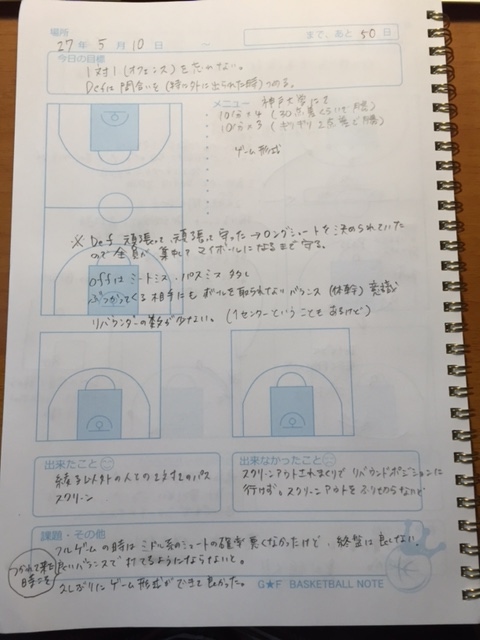 場所
27年 5月 10日 ~ まで、あと 50日
今日の目標
1対1 (オフェンス) を忘れない。
Defは間合いを (特に外に出られた時) つめる。
メニュー 神戸大学にて
10分×4 (30点差くらいで勝)
10分×3 (ギリギリ2点差で勝)
ゲーム形式
※ Def 頑張って、頑張って守った→ロングシュートを決められていた
ので全員が集中してマイボールになるまで守る。
offは ミートミス・パスミス 多し
ぶつかってくる相手にも ボールを取られない バランス (体幹) 意識
リバウンダーの数が少ない。(1センターということもあるけど)
出来たこと
以外の人との合わせのパス
スクリーン
出来なかったこと
スクリーンアウトされまくりで リバウンドポジションに
行けず。スクリーンアウトを ふりきらないと
課題・その他
フルゲームの時は ミドル系のシュートの確率 悪くなかったけど、終盤は良くない。
つかれて来た時こそ 良いバランスで 打てるようにならないと。
久しぶりに ゲーム形式ができて良かった。
G★F BASKETBALL NOTE